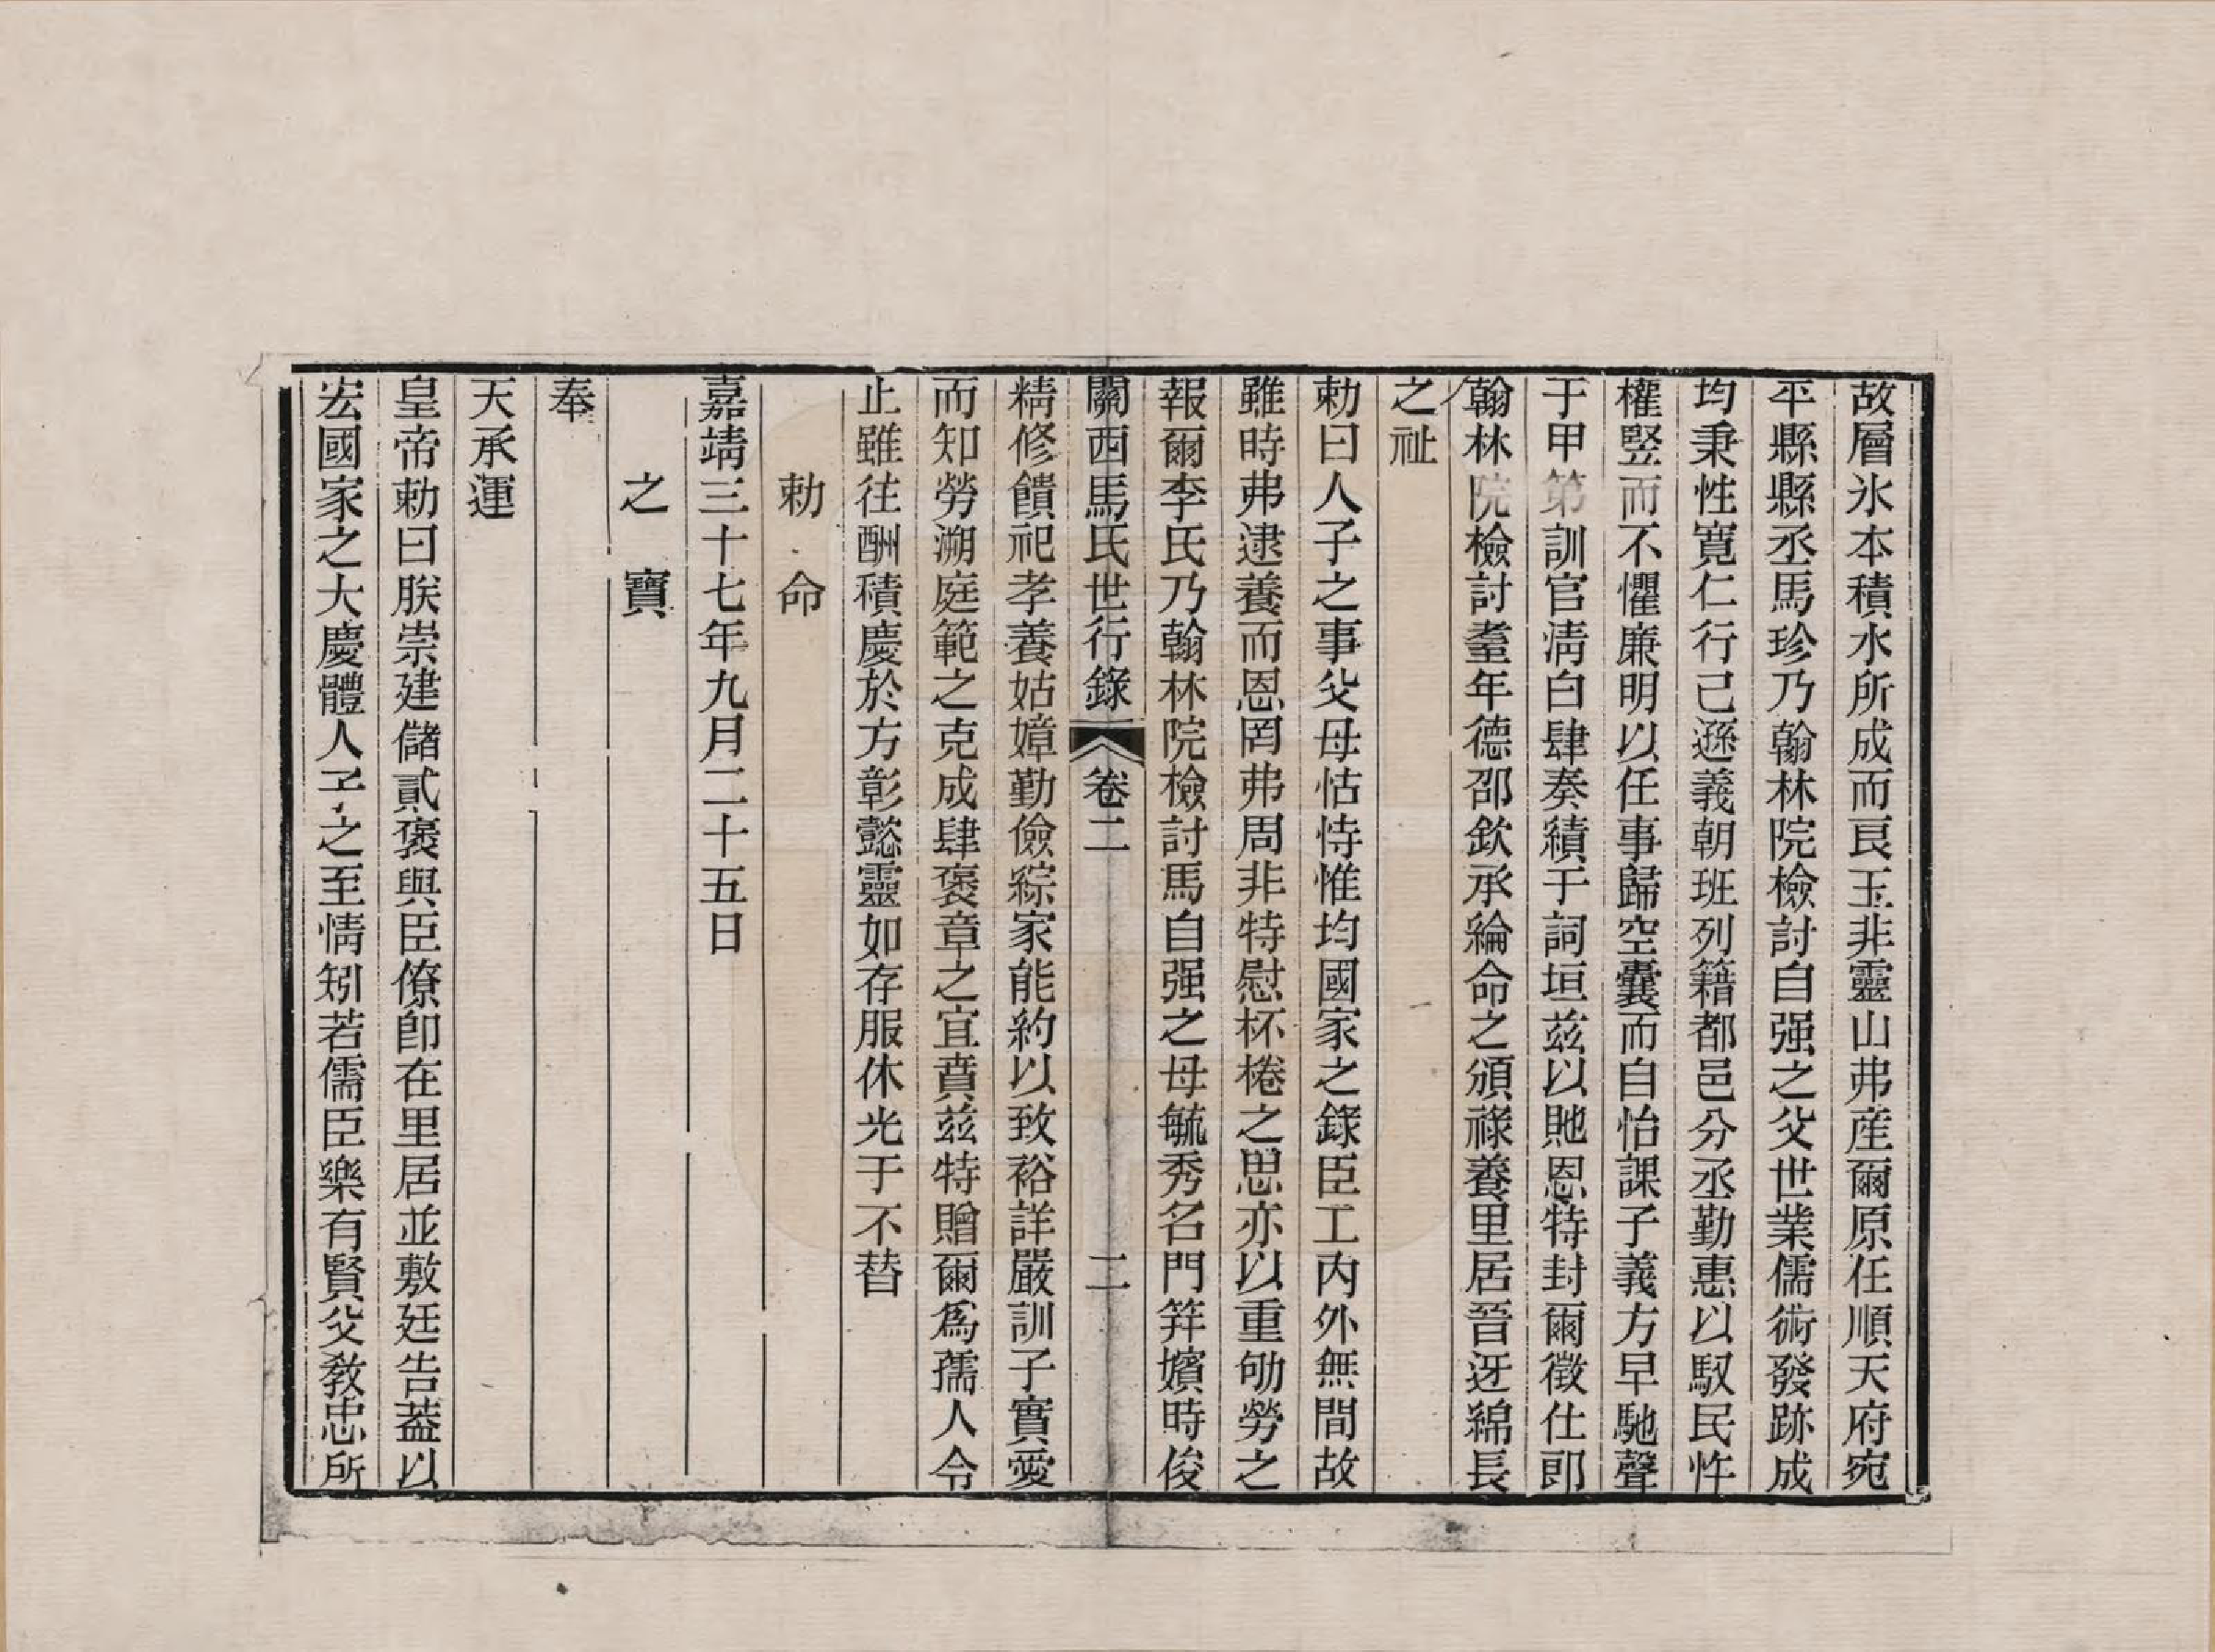 故層氷本積水所成而良玉非靈山弗産爾原任順天府宛
平縣縣丞馬珍乃翰林院檢討自强之父世業儒術發跡成
均秉性寛仁行己遜義朝班列籍都邑分丞勤惠以馭民忤
權竪而不懼廉明以任事歸空囊而自怡課子義方早馳聲
于甲第訓官淸白肆奏績于詞垣兹以貤恩特封爾徵仕郎
翰林院檢討耋年德邵欽承綸命之頒祿養里居晉迓綿長
之祉
勅曰人子之事父母怙恃惟均國家之錄臣工内外無間故
雖時弗逮養而恩罔弗周非特慰杯棬之思亦以重劬勞之
報爾李氏乃翰林院檢討馬自强之母毓秀名門筓嬪時俊
關西馬氏世行錄 卷二 二
精修饋祀孝養姑嫜勤儉綜家能約以致裕詳嚴訓子實愛
而知勞溯庭範之克成肆褒章之宜賁兹特贈爾爲孺人令
止雖往酬積慶於方彰懿靈如存服休光于不替
勅命
嘉靖三十七年九月二十五日
之寶
奉
天承運
皇帝勅曰朕崇建儲貳褒與臣僚卽在里居並敷廷告葢以
宏國家之大慶體人子之至情矧若儒臣樂有賢父教忠所